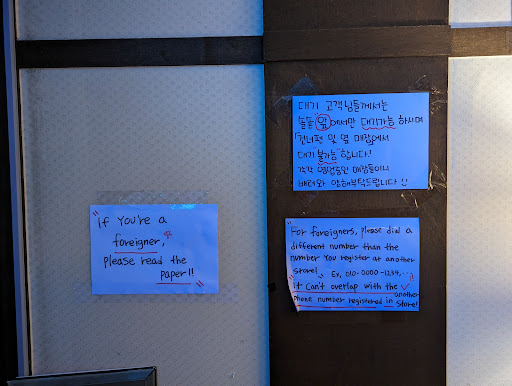 "If You're a
foreigner,"
please read the
paper!!"
대기 고객님들께서는
놀돌 앞에서만 대기가능 하시며
「건너편 및 옆 매장에서
대기 불가능" 합니다!
각각 영업중인 매장들이니
배려와 양해부탁드립니다!!
"For foreigners, please dial a
different number than the
number You register at another
store!" Ex, 010-0000-1234...
"it can't overlap with the
another
phone number registered in store!